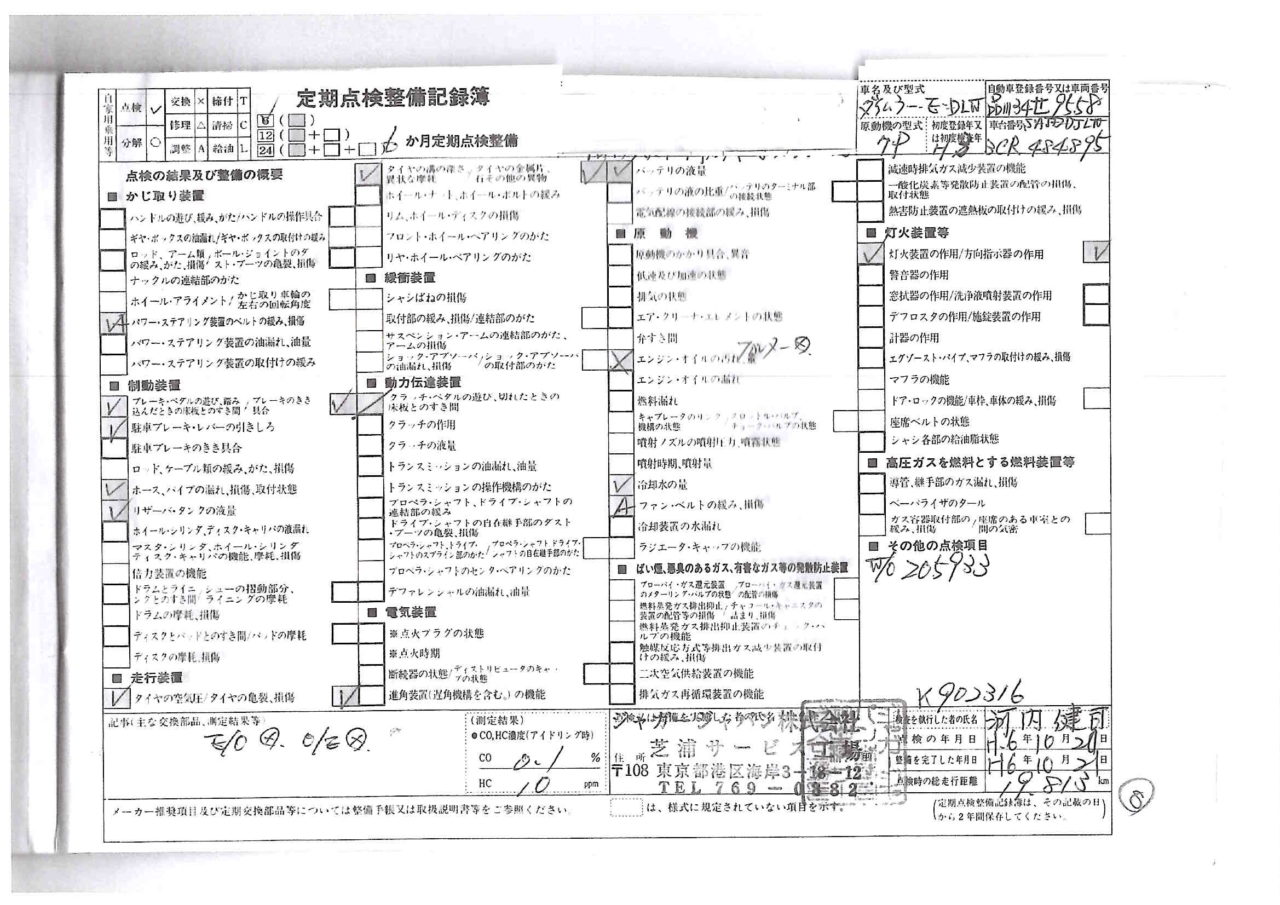 自家用乗用等
点検 ✓ 交換 × 締付 T
修理 △ 清掃 C
分解 ○ 調整 A 給油 L
定期点検整備記録簿
6 ( )
12 ( + )
24 ( + + ) 6 か月定期点検整備
車名及び型式
自動車登録番号又は車両番号
E-DLW
品川34 9558
原動機の型式
初度登録年又は初度検査年
車台番号
3CR 484895
点検の結果及び整備の概要
■ かじ取り装置
ハンドルの遊び、緩み、がた/ハンドルの操作具合
ギヤ・ボックスの油漏れ/ギヤ・ボックスの取付けの緩み
ロッド、アーム類の緩み、がた、損傷/ボール・ジョイントのダスト・ブーツの亀裂、損傷
ナックルの連結部のがた
ホイール・アライメント/かじ取り車輪の左右の回転角度
パワー・ステアリング装置のベルトの緩み、損傷
パワー・ステアリング装置の油漏れ、油量
パワー・ステアリング装置の取付けの緩み
■ 制動装置
ブレーキ・ペダルの遊び、踏み込んだときの床板とのすき間/ブレーキのきき具合
駐車ブレーキ・レバーの引きしろ
駐車ブレーキのきき具合
ロッド、ケーブル類の緩み、がた、損傷
ホース、パイプの漏れ、損傷、取付状態
リザーバ・タンクの液量
ホイール・シリンダ、ディスク・キャリパの液漏れ
マスタ・シリンダ、ホイール・シリンダ、ディスク・キャリパの機能、摩耗、損傷
倍力装置の機能
ドラムとライニングとのすき間/シューの摺動部分、ライニングの摩耗
ドラムの摩耗、損傷
ディスクとパッドとのすき間/パッドの摩耗
ディスクの摩耗、損傷
■ 走行装置
タイヤの空気圧/タイヤの亀裂、損傷
タイヤの溝の深さ、異状な摩耗/タイヤの金属片、石その他の異物
ホイール・ナット、ホイール・ボルトの緩み
リム、ホイール・ディスクの損傷
フロント・ホイール・ベアリングのがた
リヤ・ホイール・ベアリングのがた
■ 緩衝装置
シャシばねの損傷
取付部の緩み、損傷/連結部のがた
サスペンション・アームの連結部のがた、アームの損傷
ショック・アブソーバの油漏れ、損傷/ショック・アブソーバの取付部のがた
■ 動力伝達装置
クラッチ・ペダルの遊び、切れたときの床板とのすき間
クラッチの作用
クラッチの液量
トランスミッションの油漏れ、油量
トランスミッションの操作機構のがた
プロペラ・シャフト、ドライブ・シャフトの連結部の緩み
ドライブ・シャフトの自在継手部のダスト・ブーツの亀裂、損傷
プロペラ・シャフト、ドライブ・シャフトのスプライン部のがた/プロペラ・シャフト、ドライブ・シャフトの自在継手部のがた
プロペラ・シャフトのセンタ・ベアリングのがた
デファレンシャルの油漏れ、油量
■ 電気装置
※点火プラグの状態
※点火時期
断続器の状態/ディストリビュータのキャップの状態
進角装置(遅角機構を含む。)の機能
バッテリの液量
バッテリの液の比重/バッテリのターミナル部の接続状態
電気配線の接続部の緩み、損傷
■ 原動機
原動機のかかり具合、異音
低速及び加速の状態
排気の状態
エア・クリーナ・エレメントの状態
弁すき間
エンジン・オイルの汚れ、量
エンジン・オイルの漏れ
燃料漏れ
噴射ノズルの噴射圧力、噴霧状態
噴射時期、噴射量
冷却水の量
ファン・ベルトの緩み、損傷
冷却装置の水漏れ
ラジエータ・キャップの機能
■ ばい煙、悪臭のあるガス、有害なガス等の発散防止装置
ブローバイ・ガス還元装置のメターリング・バルブの状態/ブローバイ・ガス還元装置の配管の損傷
燃料蒸発ガス排出抑止装置の配管等の損傷/チャコール・キャニスタの詰まり、損傷
燃料蒸発ガス排出抑止装置のチェック・バルブの機能
触媒反応方式等排出ガス減少装置の取付けの緩み、損傷
二次空気供給装置の機能
排気ガス再循環装置の機能
減速時排気ガス減少装置の機能
一酸化炭素等発散防止装置の配管の損傷、取付状態
熱害防止装置の遮熱板の取付けの緩み、損傷
■ 灯火装置等
灯火装置の作用/方向指示器の作用
警音器の作用
窓拭器の作用/洗浄液噴射装置の作用
デフロスタの作用/施錠装置の作用
計器の作用
エグゾースト・パイプ、マフラの取付けの緩み、損傷
マフラの機能
ドア・ロックの機能/車枠、車体の緩み、損傷
座席ベルトの状態
シャシ各部の給油脂状態
■ 高圧ガスを燃料とする燃料装置等
導管、継手部のガス漏れ、損傷
ベーパライザのタール
ガス容器取付部の緩み、損傷/座席のある車室との間の気密
■ その他の点検項目
W/O 205933
K902316
記事(主な交換部品、測定結果等)
E/O ⊗. O/E ⊗.
(測定結果)
●CO,HC濃度(アイドリング時)
CO 0.1 %
HC 10 ppm
ジャガージャパン株式会社
芝浦サービス工場
住所
〒108 東京都港区海岸3-18-12
TEL 769-0382
検査を執行した者の氏名 河内 健司
点検の年月日 H.6年10月20日
整備を完了した年月日 H6年10月21日
点検時の総走行距離 19,813 km
メーカー推奨項目及び定期交換部品等については整備手帳又は取扱説明書等をご参照ください。
は、様式に規定されていない項目を示す。
(定期点検整備記録簿は、その記載の日から2年間保存してください。)
⑧